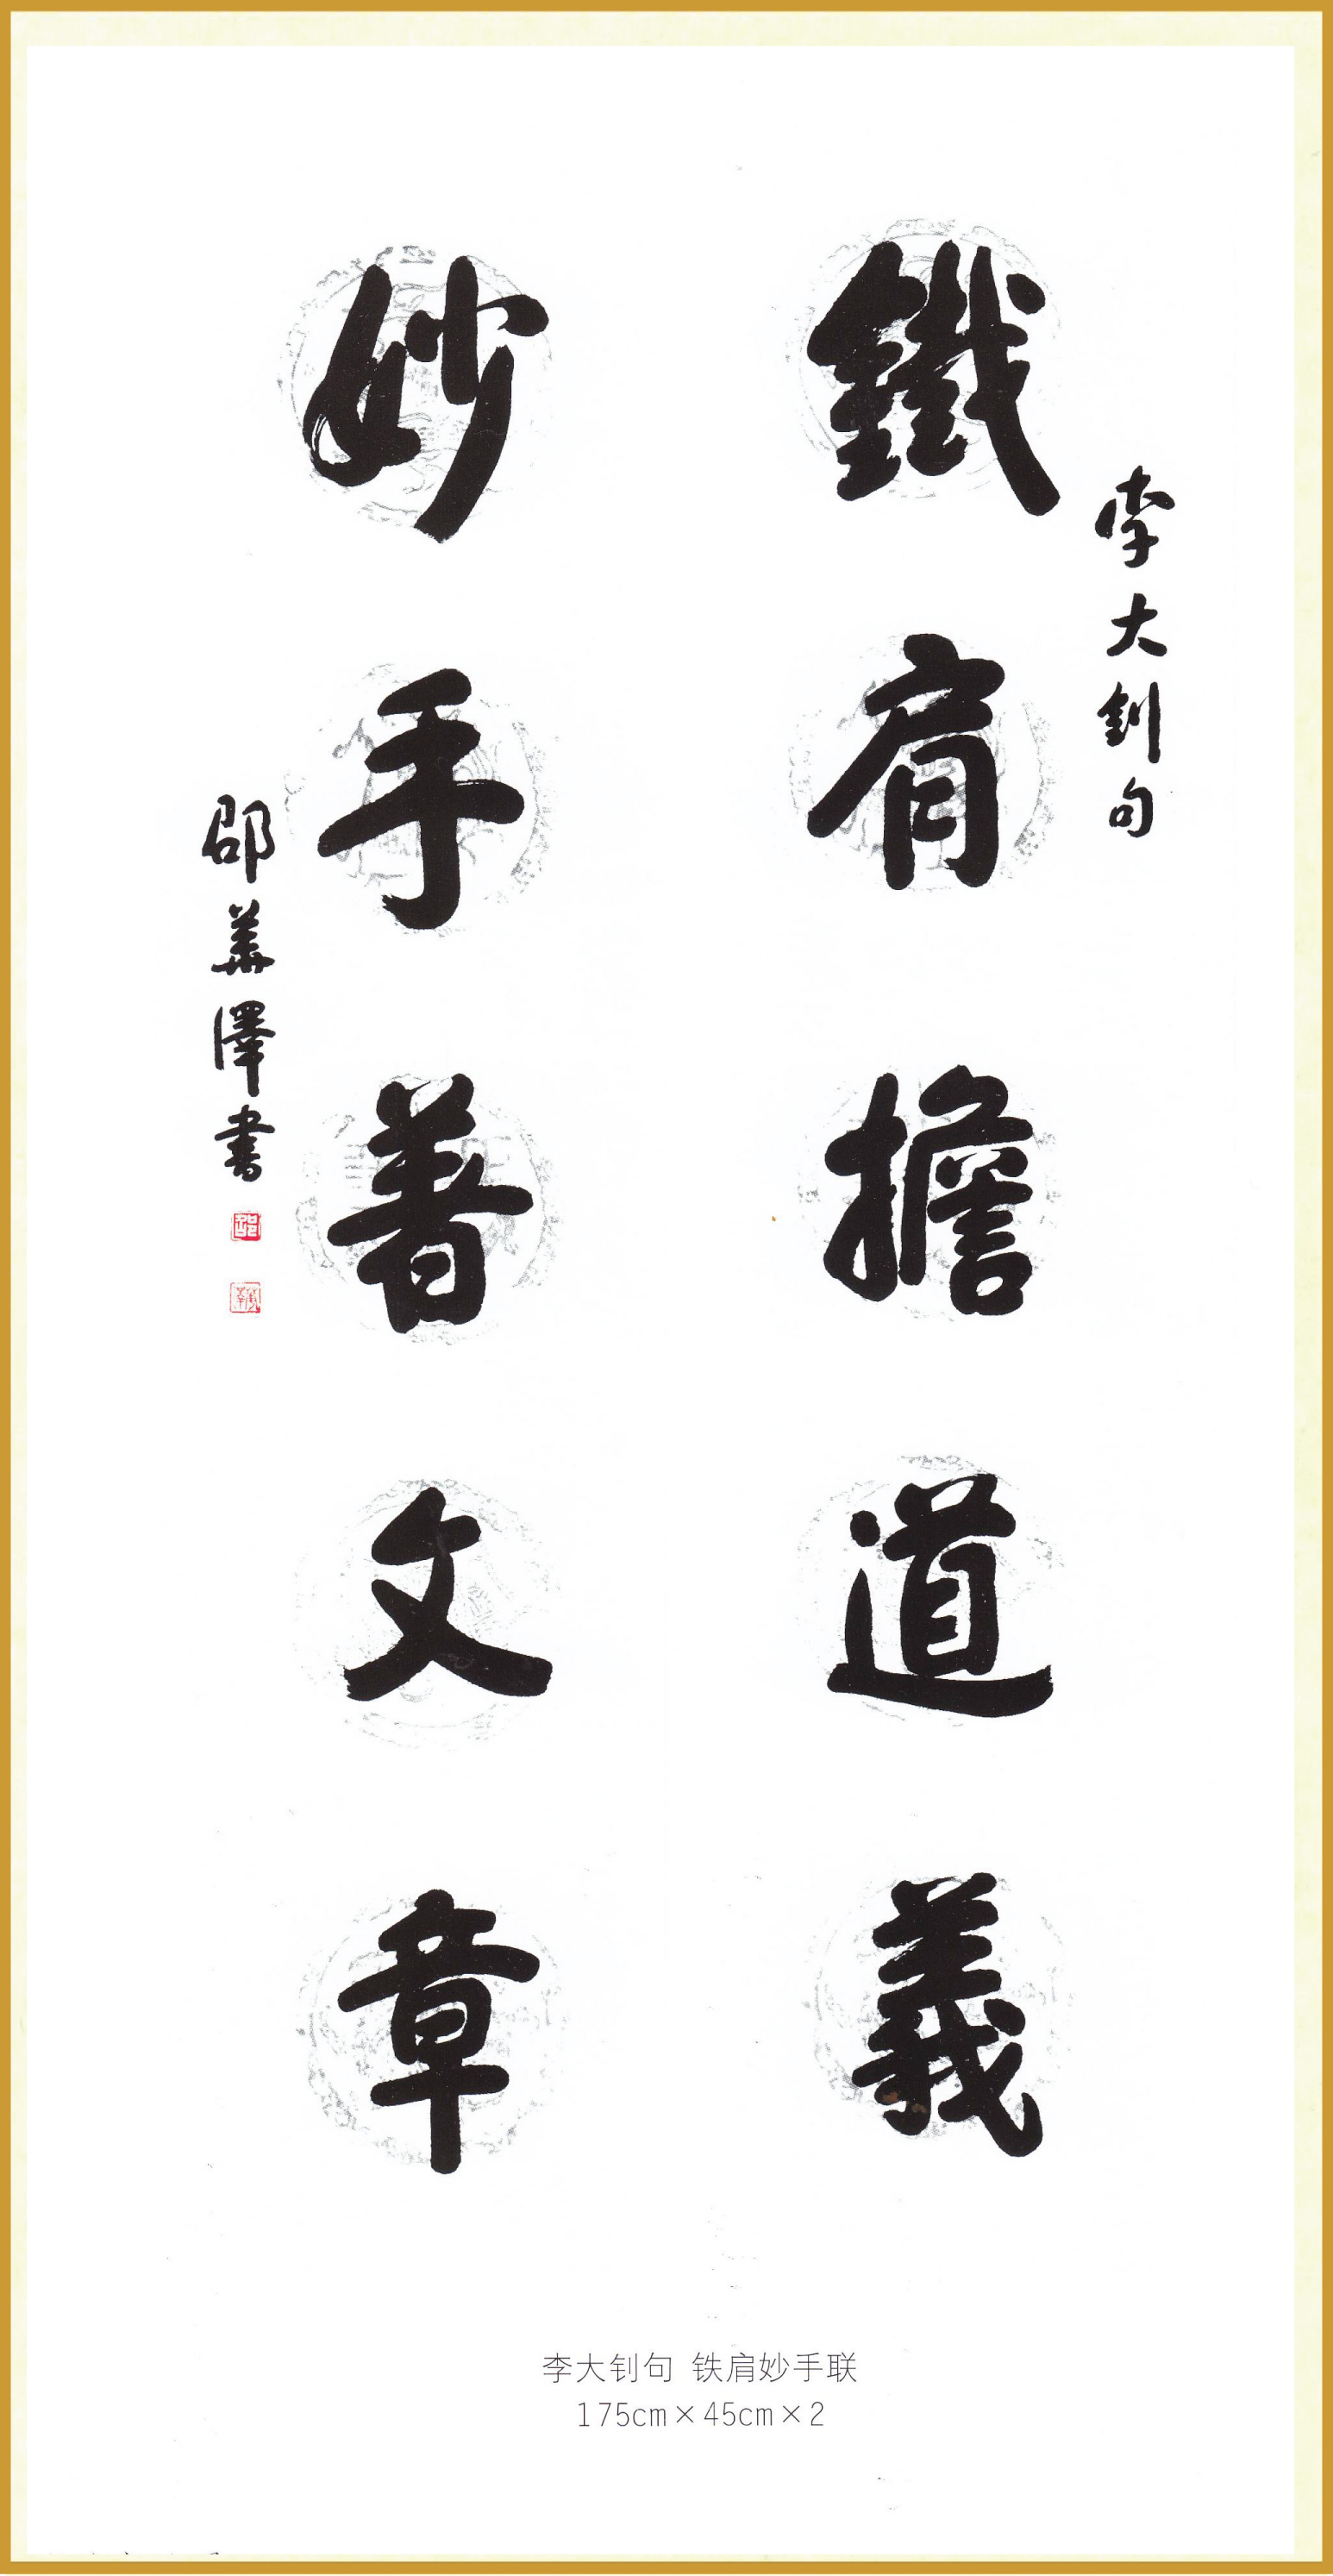 李大釗句
鐵肩擔道義
妙手著文章
邵華澤書
李大钊句 铁肩妙手联
175cm×45cm×2